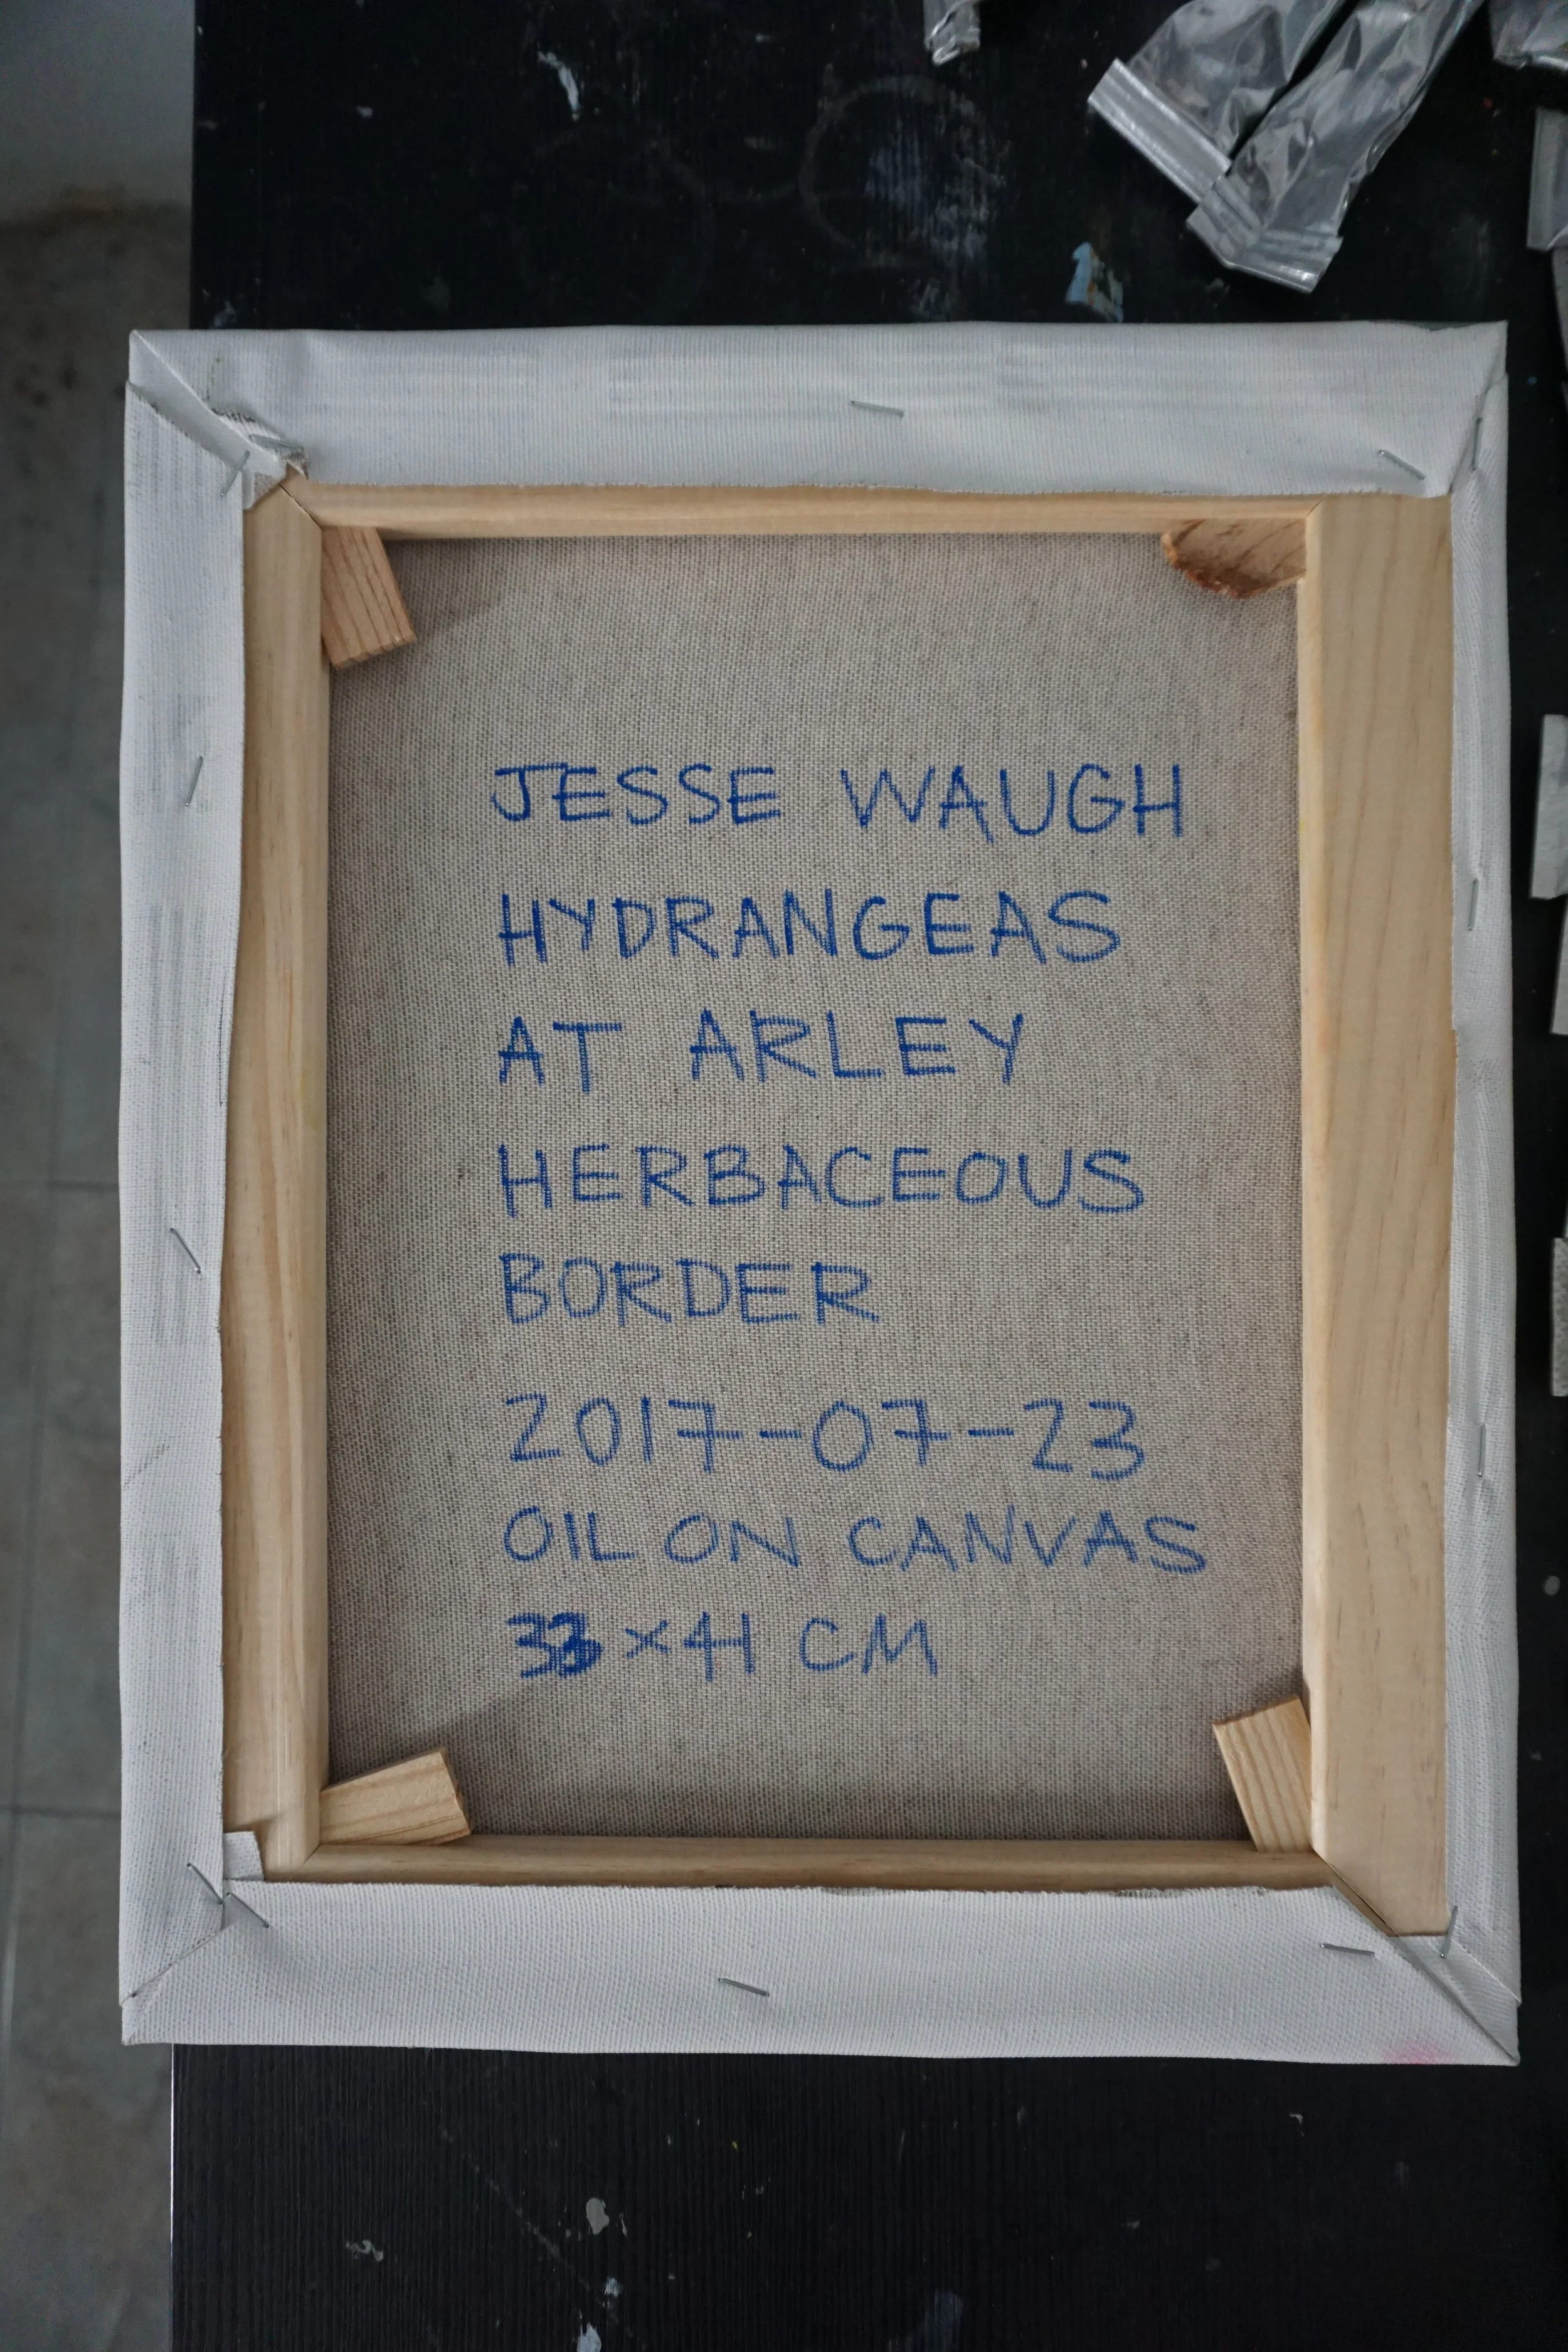 JESSE WAUGH
HYDRANGEAS
AT ARLEY
HERBACEOUS
BORDER
2017-07-23
OIL ON CANVAS
33 × 41 CM